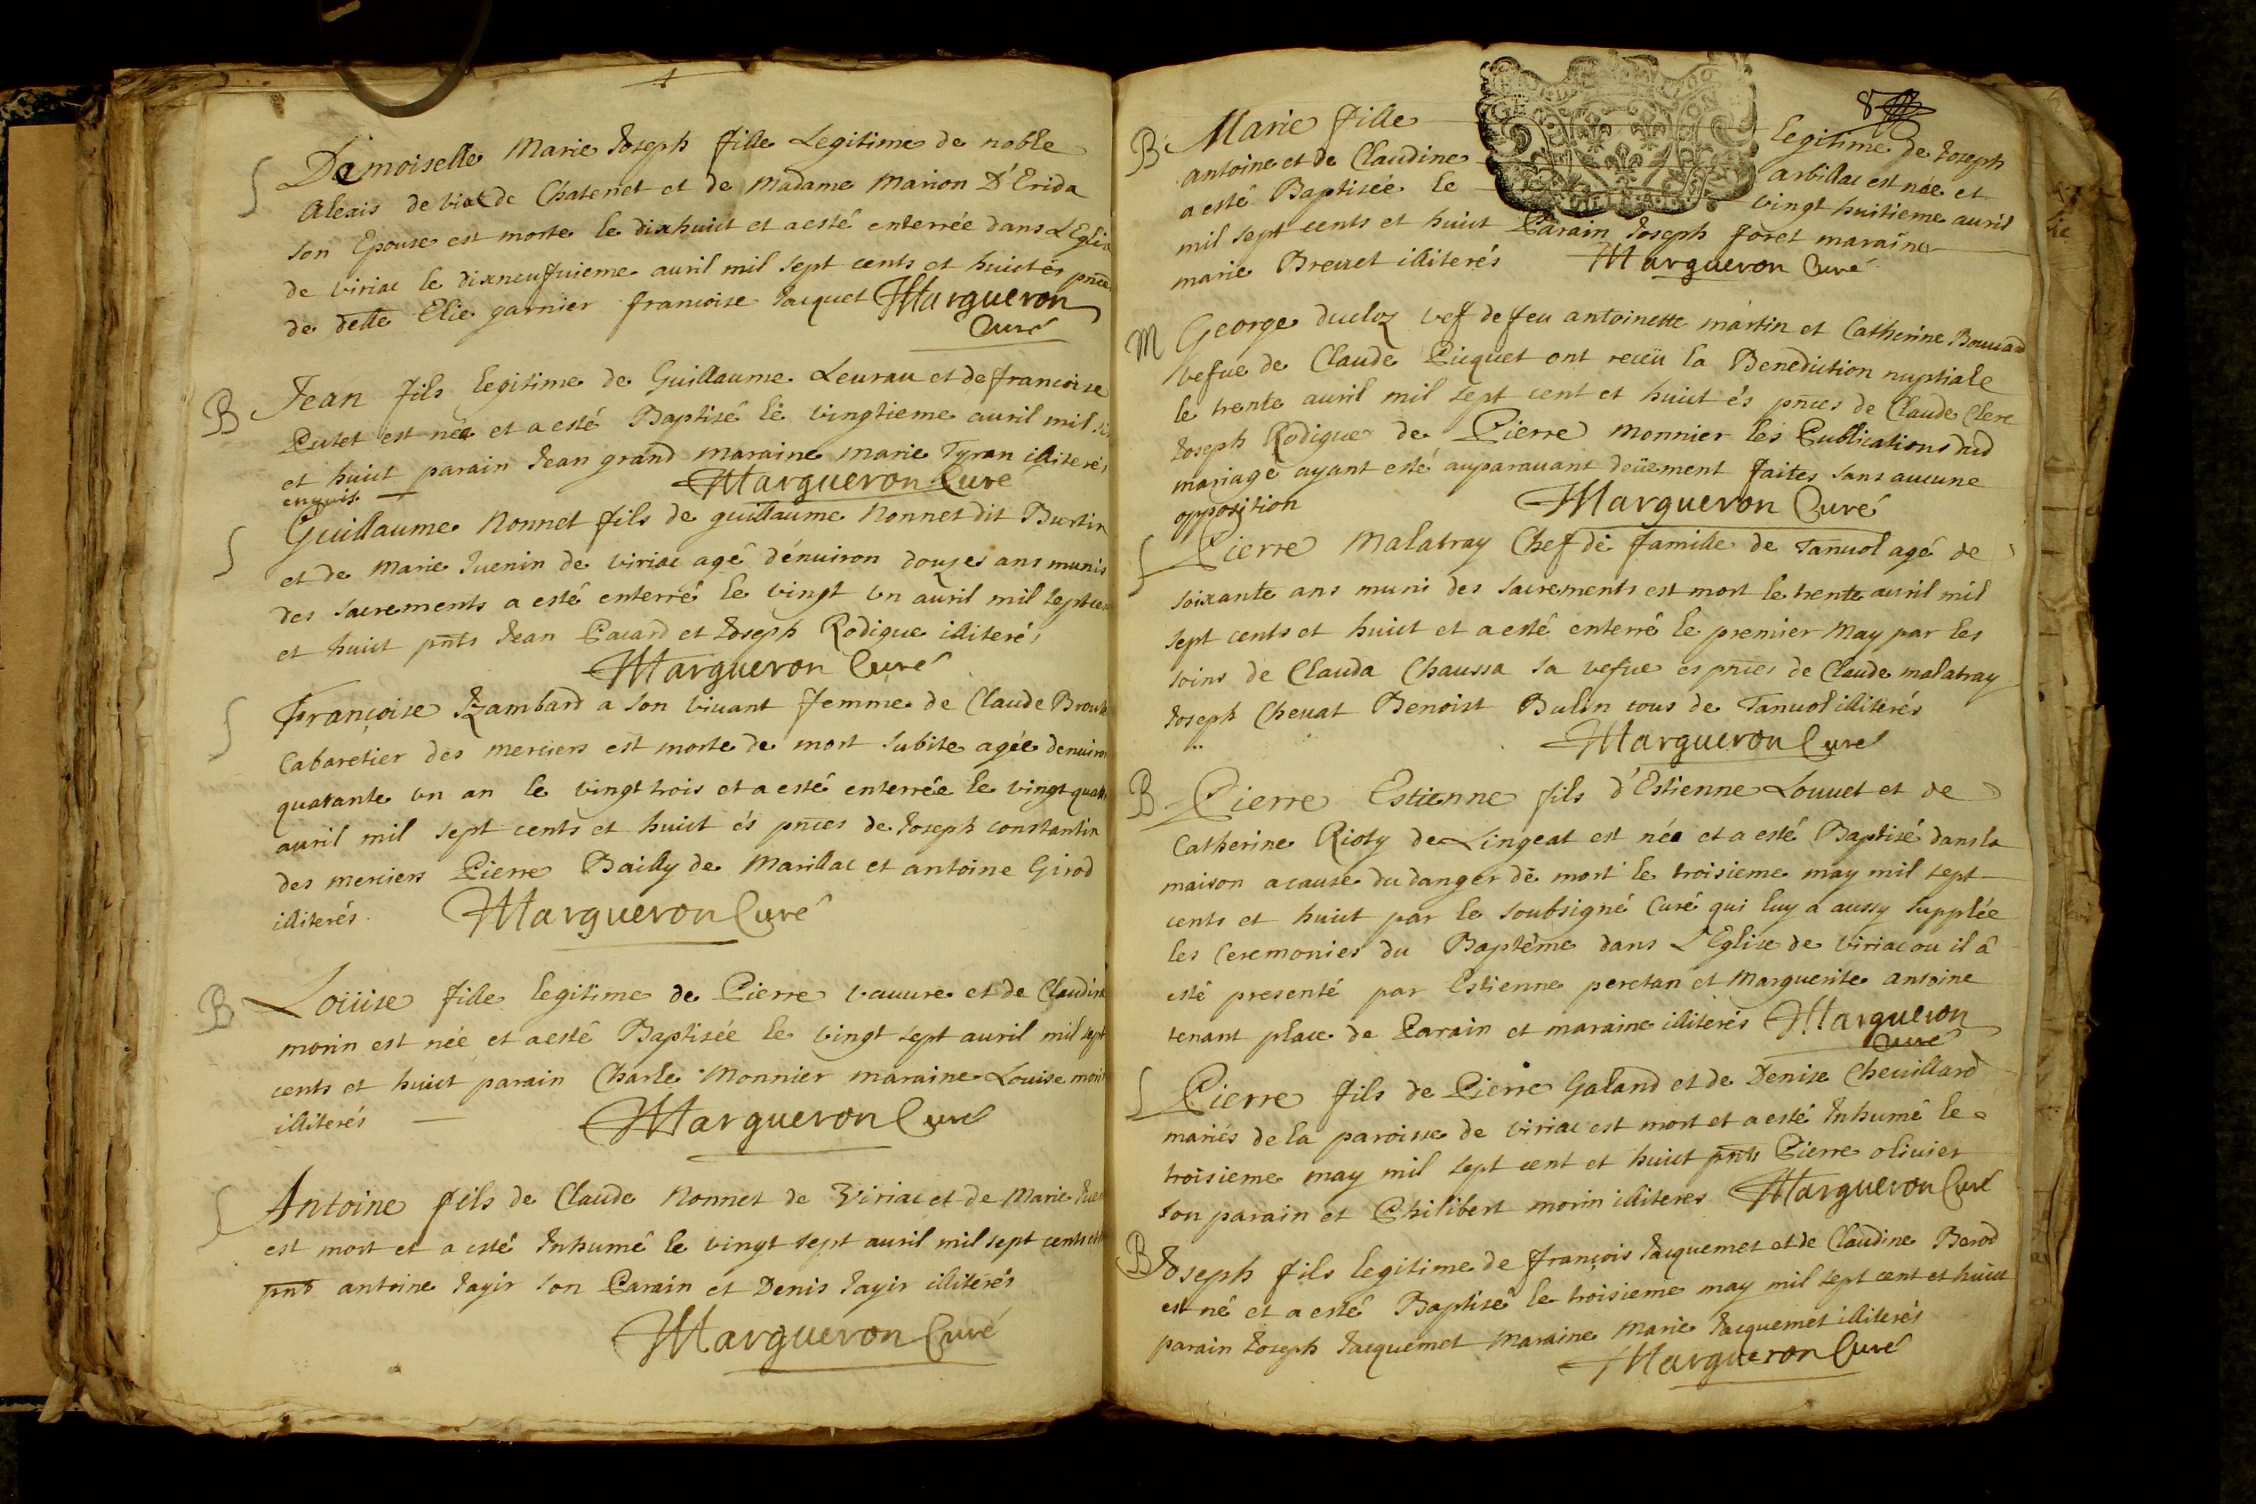 S Demoiselle Marie Joseph fille Legitime de noble
Alexis de vial de Chatenet et de Madame Marion D'Erida
son Epouse est morte le dixhuict et a esté enterrée dans L'Eglis
de viriac le dixneufuieme auril mil sept cents et huict és pnces
de delle Elie garnier francoise Jacquet Margueron
Curé
B Jean fils legitime de Guillaume Leurau et de francoise
Putet est née et a esté Baptisé le vingtieme auril mil
et huict parain Jean grand maraine marie Tyran illiterés
enquis Margueron Curé
S Guillaume Nonnet fils de guillaume Nonnet dit Burtin
et de Marie Juenin de viriac agé d'énuiron douzes ans munis
des sacrements a esté enterré le vingt vn auril mil sept
et huict pnts Jean Pacard et Joseph Rodigue illiterés
Margueron Curé
S Françoise Zambard a son viuant femme de Claude
Cabaretier des merciers est morte de mort subite agée denuiron
quarante vn an le vingt trois et a esté enterrée le vingt quatr
auril mil sept cents et huict és pnces de Joseph constantin
des merciers Pierre Bailly de Marillac et antoine Girod
illiterés. Margueron Curé
B Loüise fille legitime de Pierre vauure et de Claudine
morin est née et a esté Baptisée le vingt sept auril mil sept
cents et huict parain Charle Monnier maraine Louise
illiterés Margueron Curé
S Antoine fils de Claude Nonnet de Viriac et de Marie
est mort et a esté Inhumé le vingt sept auril mil sept cents
pnts antoine Jayir son Parain et Denis Jayir illiterés
Margueron Curé
8
B Marie fille legitime de Joseph
antoine et de Claudine arbillac est née et
a esté Baptisée le vingt huitieme auril
mil sept cents et huict Parain Joseph foret maraine
marie Breuet illiterés Margueron Curé
M George ducloz vef de feu antoinette martin et Catherine Bouuard
vefue de Claude Picquet ont receü la Benediction nuptiale
le trente auril mil sept cent et huict és pnces de Claude Clerc
Joseph Rodigue de Pierre Monnier les Publications dud
mariage ayant esté auparauant deüement faites sans aucune
opposition Margueron Curé
S Pierre Malatray Chef de famille de Tanuol agé de
soixante ans muni des sacrements est mort le trente auril mil
sept cents et huict et a esté enterré le premier May par les
soins de Clauda Chaussa sa vefue es pnces de Claude malatray
Joseph Cheuat Benoist Bulin tous de Tanuol illiterés
Margueron Curé
B Pierre Estienne fils d'Estienne Louuet et de
Catherine Rioty de Lingeat est née et a esté Baptisé dans la
maison a cause du danger de mort le troisieme may mil sept
cents et huict par le soubsigné Curé qui luy a aussy supplée
les Ceremonies du Baptême dans L'Eglise de viriac ou il â
esté presenté par Estienne peretan et Marguerite antoine
tenant place de Parain et maraine illiterés Margueron
Curé
S Pierre fils de Pierre Galand et de Denise Cheuillard
mariés de la paroisse de viriac est mort et a esté Inhumé le
troisieme may mil sept cent et huict pnts Pierre oliuier
son parain et Philibert morin illiteres Margueron Curé
B Joseph fils legitime de françois Jacquemet et de Claudine Berod
est né et a esté Baptisé le troisieme may mil sept cent et huict
parain Joseph Jacquemet Maraine Marie Jacquemet illiterés
Margueron Curé